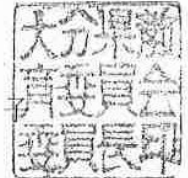 大分県教
育委員会
委員長印